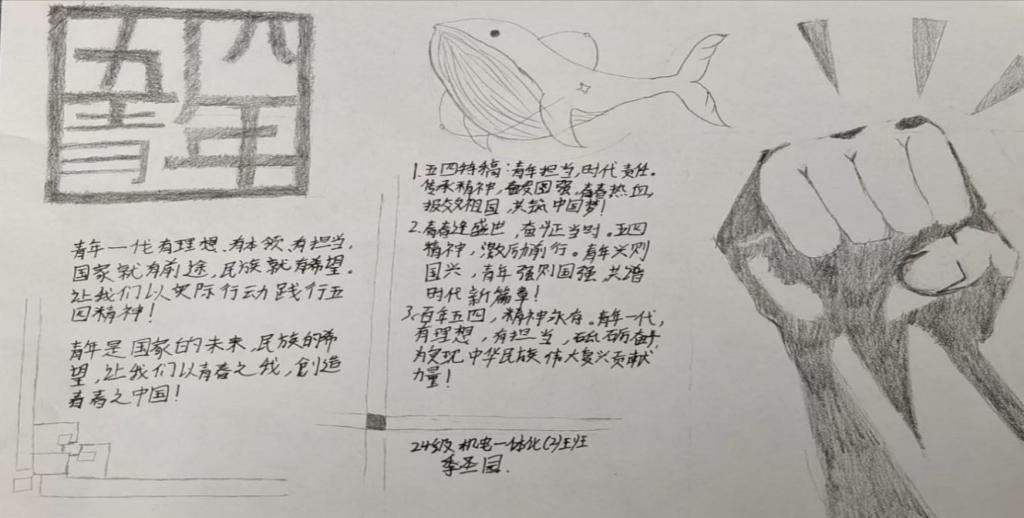 五四
青年
青年一代有理想、有本领、有担当,
国家就有前途,民族就有希望。
让我们以实际行动践行五
四精神!
青年是国家的未来,民族的希
望,让我们以青春之我,创造
青春之中国!
1.五四特稿:青年担当,时代责任。
传承精神,奋发图强,青春热血,
报效祖国,共筑中国梦!
2.青春逢盛世,奋斗正当时。五四
精神,激励前行。青年兴则
国兴,青年强则国强,共谱
时代新篇章!
3.百年五四,精神永存。青年一代,
有理想,有担当,砥砺奋
为实现中华民族伟大复兴贡献
力量!
24级机电一体化(2)班
李圣园.